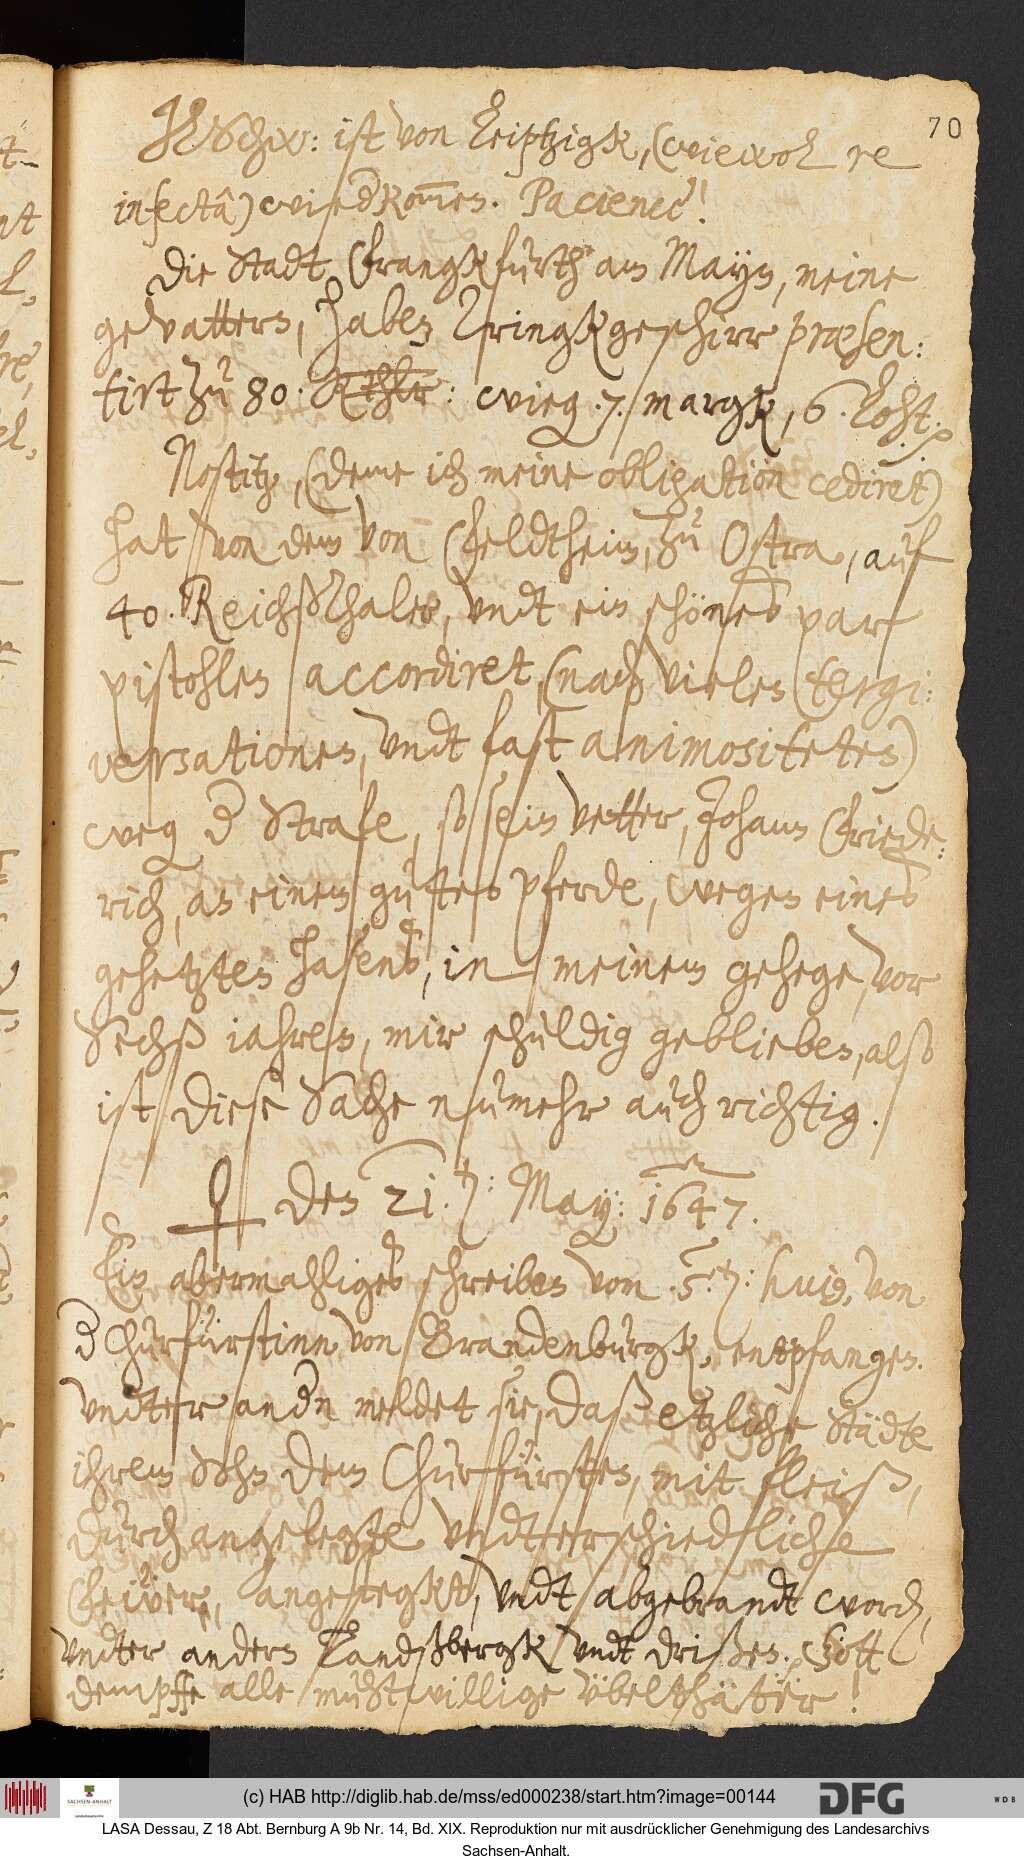 70
ist von Leiptzigk, (wiewol re
infectâ) wiederkommen. Pacience!
Die Stadt Franckfurth am Mayn, meine
gevattern, haben Tringkgeschirr præsen:
tirt zu 80. Rthlr: wieg .7. margk, 6. Loht.
Nostitz, (deme ich meine obligation cediret)
hat von dem von Feldtheim, zu Ostra, auf
40. Reichßthaler, undt ein schönes par
pistohlen accordiret, (nach vielen tergi:
versationen, undt fast animositeten)
weg der Strafe, so sein vetter, Johann Friede:
rich, an einem guten pferde, wegen eines
gehetzten hasens, in meinem gehege, vor
Sechß iahren, mir schuldig geblieben, also
ist diese Sache numehr auch richtig.
♀ den 21. May: 1647.
Ein abermahliges schreiben vom .5. huius, von
der Churfürstinn von Brandenburgk, entpfangen.
Undter andern meldet sie, daß etzliche Städte
ihrem Sohn dem Churfürsten, mit fleiß,
durch angelegte undterschiedtliche
Feüer, angestegkt, undt abgebrandt worden,
undter andern Landßbergk undt Drißen. Gott
dempffe alle muhtwillige übelthäter!
(c) HAB http://diglib.hab.de/mss/ed000238/start.htm?image=00144
SACHSEN-ANHALT
DFG
WDB
LASA Dessau, Z 18 Abt. Bernburg A 9b Nr. 14, Bd. XIX. Reproduktion nur mit ausdrücklicher Genehmigung des Landesarchivs
Sachsen-Anhalt.